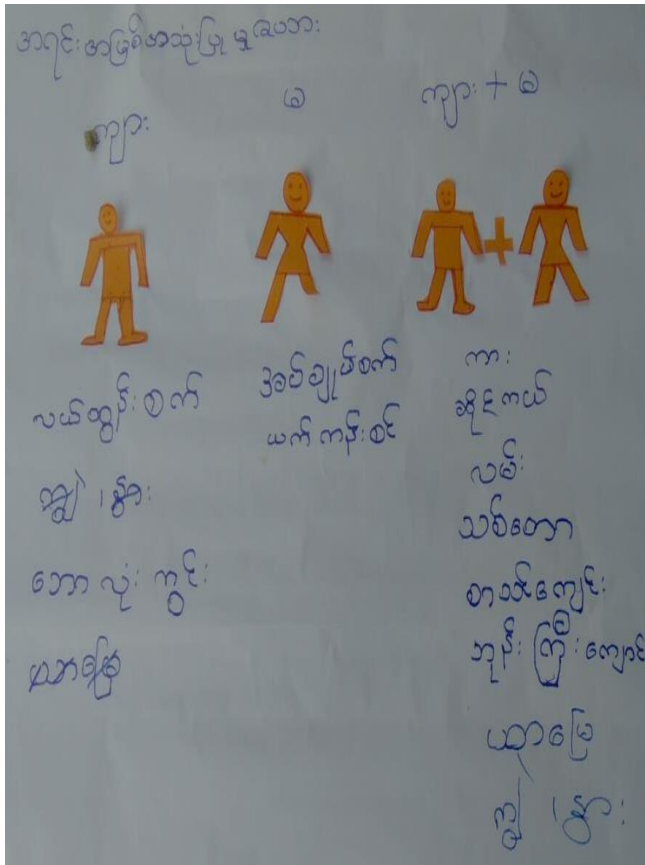 အရင်းအမြစ်အသုံးပြုမှုဇယား
ကျား
မ
ကျား + မ
လယ်ထွန်းစက်
ကျွဲ ၊ နွား
ဘောလုံးကွင်း
ယာမြေ
အပ်ချုပ်စက်
ယက်ကန်းစင်
ကား
ဆိုင်ကယ်
လမ်း
သစ်တော
စာသင်ကျောင်း
ဘုန်းကြီးကျောင်း
ယာမြေ
ကျွဲ ၊ နွား